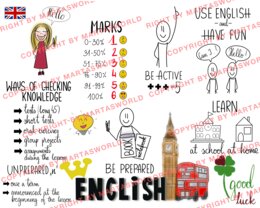 Hello
MARKS
0-30% 1
31-50% 2
51-75% 3
76-90% 4
91-99% 5
100% 6
USE ENGLISH
and
HAVE FUN
Hello!
BE ACTIVE
WAYS OF CHECKING
KNOWLEDGE
tests
short talks
oral delivery
group projects
assignments
during the lesson
LEARN
at school at home
UNPREPARED
once a term
announced at the
beginning of the lesson
BE PREPARED
ENGLISH
good
luck
COPYRIGHT BY MARTASWORLD